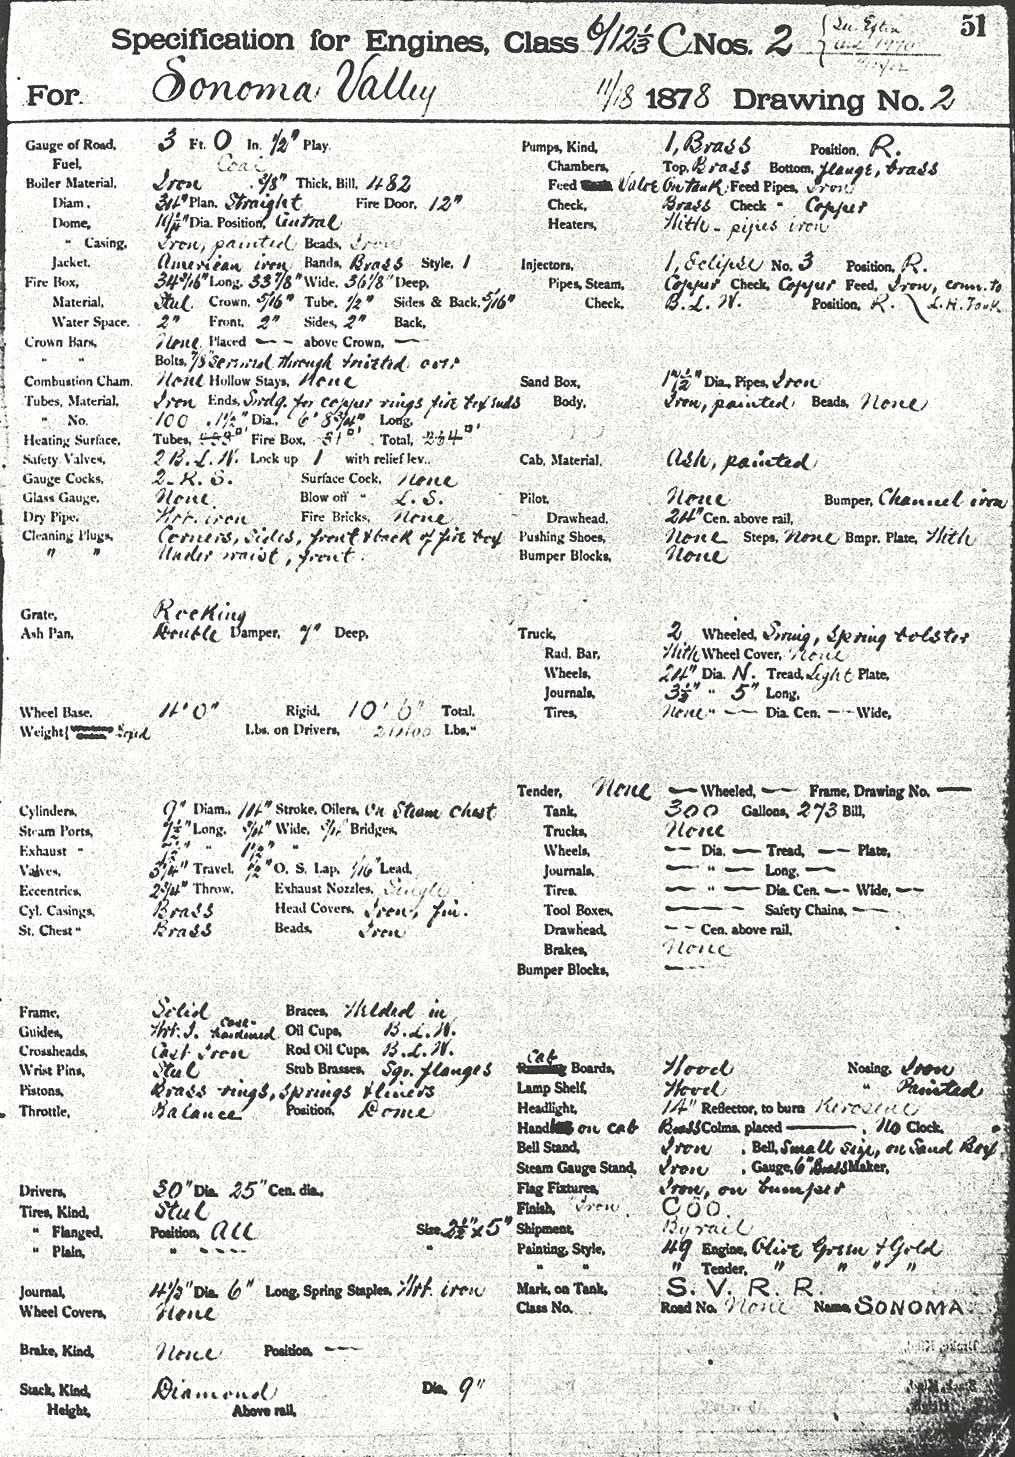 51
Specification for Engines, Class 6/12⅓ C Nos. 2
For Sonoma Valley 11/18 1878 Drawing No. 2
Gauge of Road, 3 Ft. 0 In. ½" Play.
Fuel, Coal
Boiler Material, Iron 3/8" Thick, Bill, 482
Diam. 34" Plan, Straight Fire Door, 12"
Dome, Dia. Position, Central
" Casing, Iron, painted Beads, Iron
Jacket, American iron Bands, Brass Style, 1
Fire Box, 34 3/16" Long, 33 7/8" Wide, 36 1/8" Deep,
Material, Steel Crown, 5/16" Tube, 1/2" Sides & Back, 5/16"
Water Space, 2" Front, 2" Sides, 2" Back,
Crown Bars, None Placed — above Crown, —
" " Bolts, 7/8 Screwed through & riveted over
Combustion Cham. None Hollow Stays, None
Tubes, Material, Iron Ends, Swdg. for copper rings fire box ends
" No. 100 1½" Dia., 6' 8¾" Long,
Heating Surface, Tubes, Fire Box, Total,
Safety Valves, 2 B. L. W. Lock up 1 with relief lev.,
Gauge Cocks, 2- K. S. Surface Cock, None
Glass Gauge, None Blow off " L. S.
Dry Pipe, Wrt. iron Fire Bricks, None
Cleaning Plugs, Corners, sides, front & back of fire box
" " Under waist, front.
Grate, Rocking
Ash Pan, Double Damper, 7" Deep,
Wheel Base, 4' 0" Rigid, 10' 6" Total,
Weight Lbs. on Drivers, Lbs. "
Cylinders, 9" Diam., 14" Stroke, Oilers, On Steam Chest
Steam Ports, 7½" Long, 3/4" Wide, 3/4" Bridges,
Exhaust " 7½" " 1½" "
Valves, 3¾" Travel, ½" O. S. Lap, 1/16" Lead,
Eccentrics, 2¾" Throw, Exhaust Nozzles, Single
Cyl. Casings, Brass Head Covers, Iron, fin.
St. Chest " Brass Beads, Iron
Frame, Solid Braces, Welded in
Guides, Wrt. I. case-hardened Oil Cups, B. L. W.
Crossheads, Cast Iron Rod Oil Cups, B. L. W.
Wrist Pins, Steel Stub Brasses, Sqr. flanges
Pistons, Brass rings, springs & liners
Throttle, Balance Position, Dome
Drivers, 30" Dia. 25" Cen. dia.,
Tires, Kind, Steel
" Flanged, Position, All Size, 2½" x 5"
" Plain, " — "
Journal, 4½" Dia. 6" Long, Spring Staples, Wrt. iron
Wheel Covers, None
Brake, Kind, None Position, —
Stack, Kind, Diamond Dia. 9"
Height, Above rail,
Pumps, Kind, 1, Brass Position, R.
Chambers, Top, Brass Bottom, flange, brass
Feed Valve On tank, Feed Pipes, Iron
Check, Brass Check " Copper
Heaters, With - pipes iron
Injectors, 1, Eclipse No. 3 Position, R.
Pipes, Steam, Copper Check, Copper Feed, Iron, conn. to
Check, B. L. W. Position, R. L. H. Tank
Sand Box, Dia., Pipes, Iron
Body, Iron, painted Beads, None
Cab, Material, Ash, painted
Pilot, None Bumper, Channel iron
Drawhead, 24" Cen. above rail,
Pushing Shoes, None Steps, None Bmpr. Plate, With
Bumper Blocks, None
Truck, 2 Wheeled, Swing, spring bolster
Rad. Bar, With Wheel Cover, None
Wheels, 24" Dia. N. Tread, Light Plate,
Journals, 3½" " 5" Long,
Tires, None " — Dia. Cen. — Wide,
Tender, None — Wheeled, — Frame, Drawing No. —
Tank, 300 Gallons, 273 Bill,
Trucks, None
Wheels, — Dia. — Tread, — Plate,
Journals, — " — Long, —
Tires, — " — Dia. Cen. — Wide, —
Tool Boxes, — Safety Chains, —
Drawhead, — Cen. above rail,
Brakes, None
Bumper Blocks, —
Cab Boards, Wood Nosing, Iron
Lamp Shelf, Wood " Painted
Headlight, 14" Reflector, to burn Kerosene
Hand on cab Brass Colms. placed — , No Clock,
Bell Stand, Iron , Bell, Small size, on Sand Box
Steam Gauge Stand, Iron , Gauge, 6" Brass Maker,
Flag Fixtures, Iron, on bumper
Finish, Iron,
Shipment, By rail
Painting, Style, 49 Engine, Olive Green & Gold
" " " Tender, " " " "
Mark, on Tank, S. V. R. R.
Class No. Road No. None Name, SONOMA.